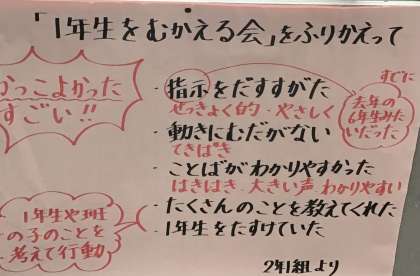 「1年生をむかえる会」をふりかえって
かっこよかった
すごい!!
・指示をだすすがた
せっきょく的・やさしく
すでに
去年の
6年生みた
いだった
・動きにむだがない
てきぱき
・ことばがわかりやすかった
はきはき・大きい声 わかりやすい
・たくさんのことを教えてくれた
・1年生をたすけていた
1年生や班
の子のことを
考えて行動
2年1組より